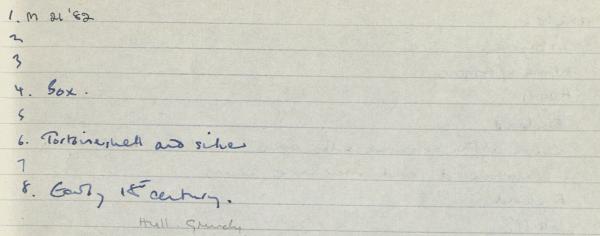 1. M 21 '82
2
3
4. Box.
5
6. Tortoiseshell and silver
7
8. Early 18th century.
Hull Grundy